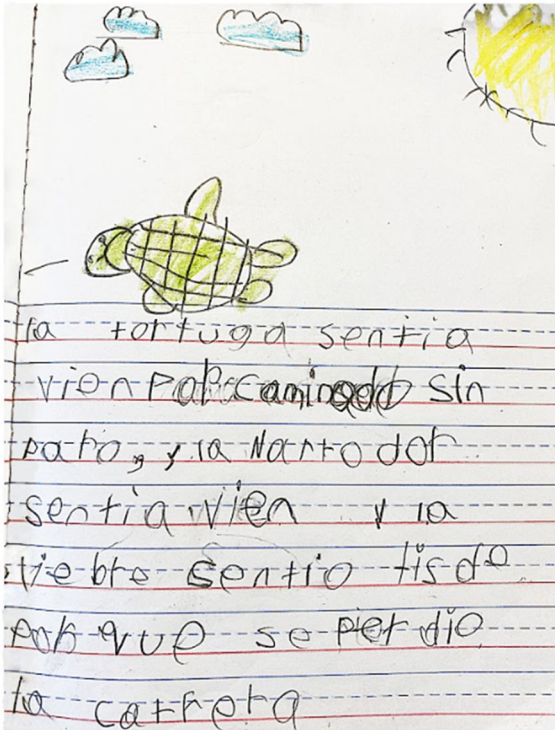 la tortuga sentia
vien Por caminado sin
paro, y la Narrodor
sentia vien y la
liebre sentio tisde
por que se pierdio
la carrera